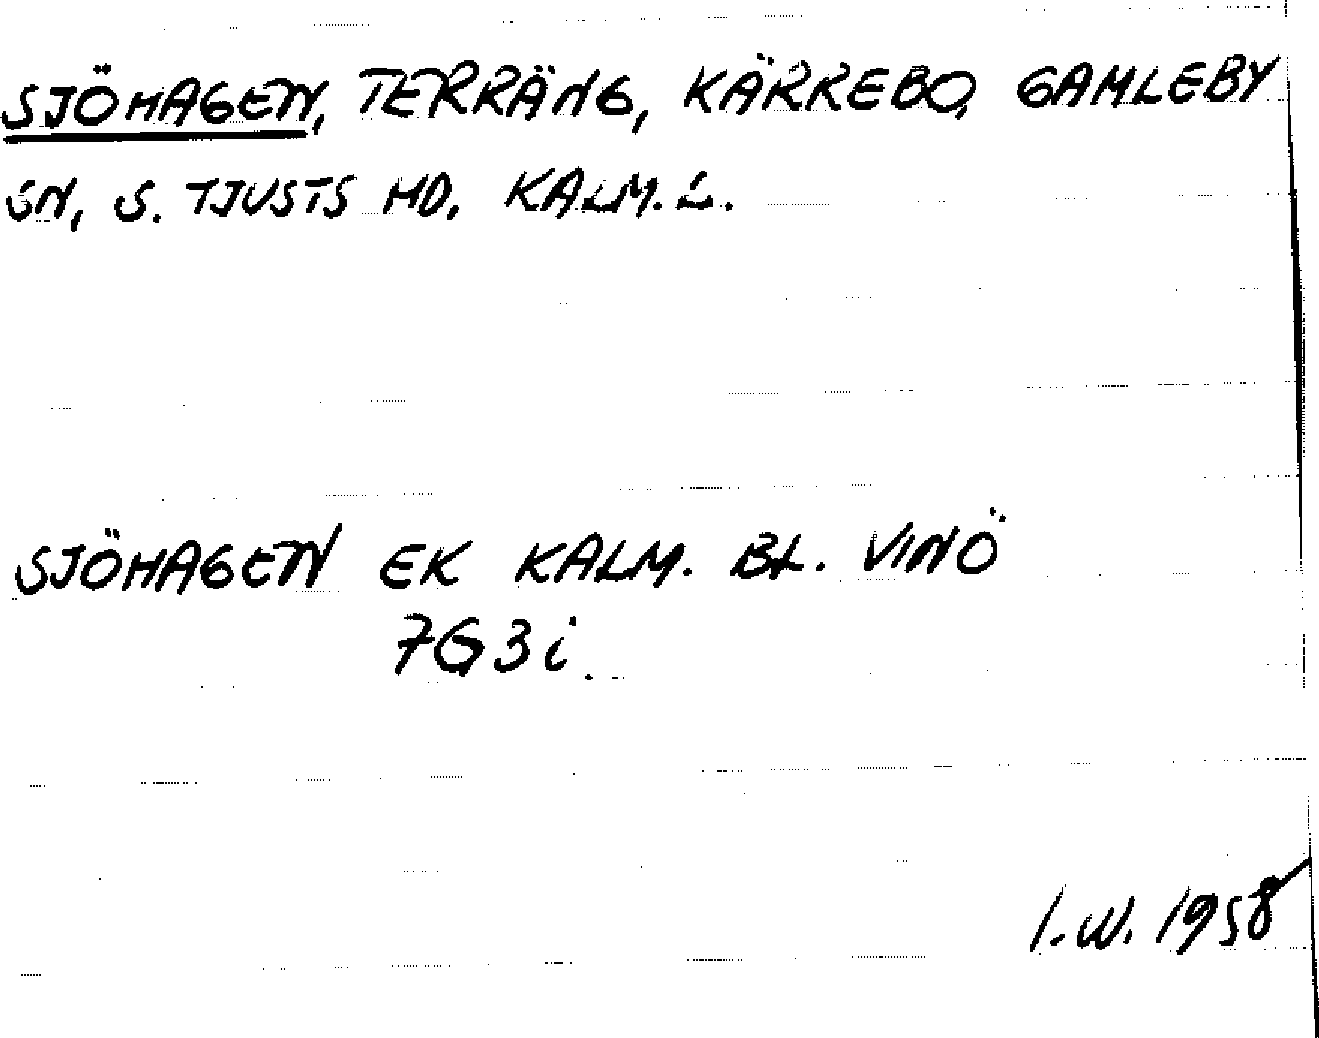 SJÖHAGEN, TERRÄNG, KÄRREBO, GAMLEBY
SN, S. TJUSTS HD, KALM. L.
SJÖHAGEN EK KALM. BL. VINÖ
7G3i.
I.W. 1958